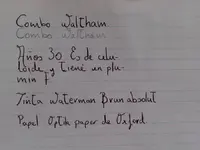 Combo Waltham
Combo Waltham
Años 30 Es de celu-
loide y tiene un plu-
min F
Tinta Waterman Brun absolut
Papel Optik paper de Oxford